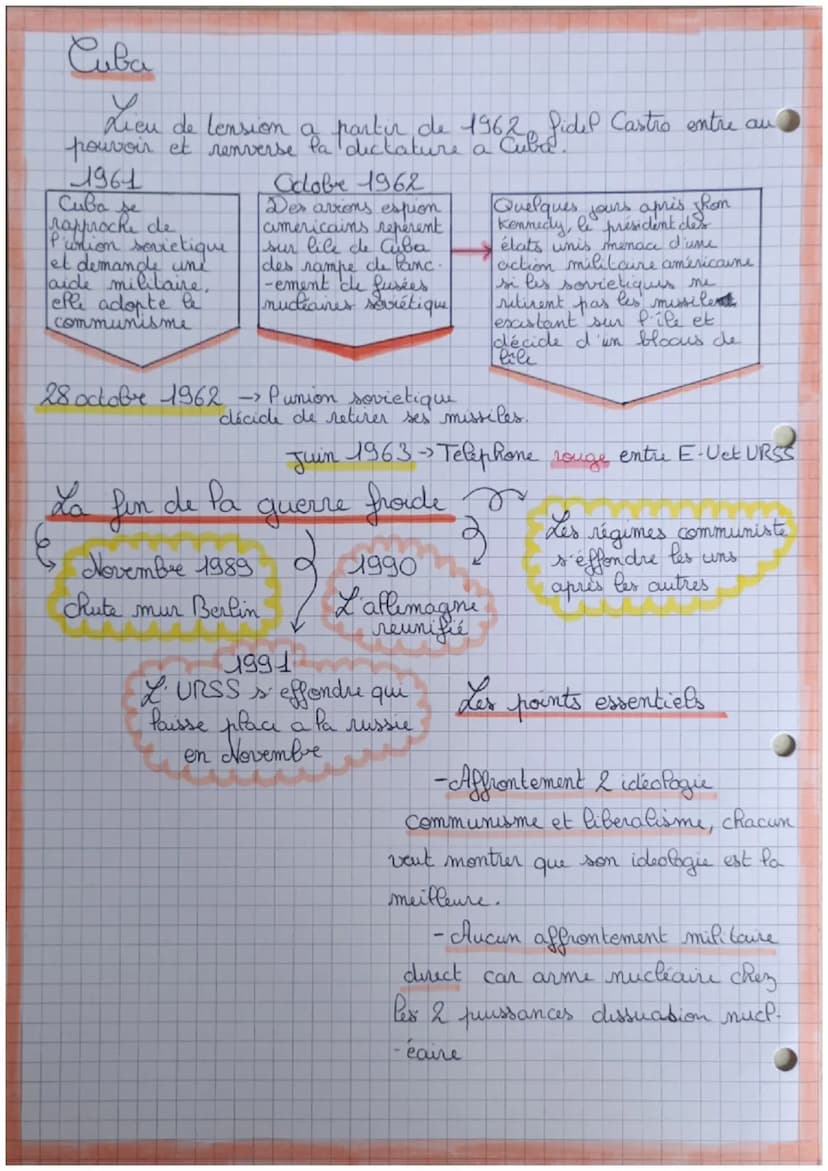 Cuba
Lieu de tension a partir de 1962, fidel Castro entre au
pouvoir et renverse la dictature a Cuba.
1961
Cuba se
rapproche de
l'union sovietique
et demande une
aide militaire,
elle adopte le
communisme
Octobre 1962
Des avions espion
americains reperent
sur l'ile de Cuba
des rampe de lanc-
-ement de fusées
nucléaires soviétique
Quelques jours après jhon
Kennedy, le président des
états unis menace d'une
action militaire américaine
si les sovietiques ne
retirent pas les missiles
existant sur l'île et
décide d'un blocus de
l'ile
28 octobre 1962 -> l'union sovietique
décide de retirer ses missiles.
Juin 1963 -> Telephone rouge entre E-U et URSS
La fin de la guerre froide
Novembre 1989
Chute mur Berlin
1990
L'allemagne
reunifié
Les régimes communiste
s'effondre les uns
après les autres
1991
L'URSS s'effondre qui
laisse place a la russie
en Novembre
Les points essentiels
- Affrontement 2 idéologie
communisme et liberalisme, chacun
veut montrer que son ideologie est la
meilleure.
- Aucun affrontement militaire
direct car arme nucléaire chez
les 2 puissances dissuasion nucl-
-éaire